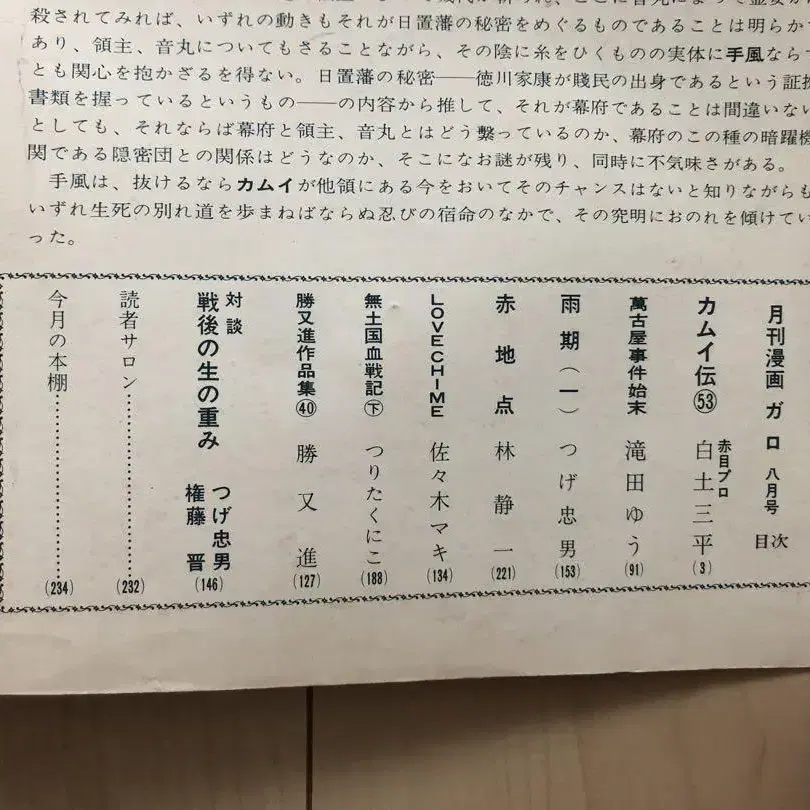 殺されてみれば、いずれの動きもそれが日置藩の秘密をめぐるものであることは明らかで
あり、領主、音丸についてもさることながら、その陰に糸をひくものの実体に手風ならず
とも関心を抱かざるを得ない。日置藩の秘密——徳川家康が賤民の出身であるという証拠
書類を握っているというもの——の内容から推して、それが幕府であることは間違いない
としても、それならば幕府と領主、音丸とはどう繋っているのか、幕府のこの種の暗躍機
関である隠密団との関係はどうなのか、そこになお謎が残り、同時に不気味さがある。
手風は、抜けるならカムイが他領にある今をおいてそのチャンスはないと知りながらも
いずれ生死の別れ道を歩まねばならぬ忍びの宿命のなかで、その究明におのれを傾けてい
った。
月刊漫画 ガロ 八月号 目次
カムイ伝㊾ 赤目プロ 白土三平 (3)
萬古屋事件始末 滝田ゆう (91)
雨期(一) つげ忠男 (153)
赤地点 林静一 (221)
LOVECHIME 佐々木マキ (134)
無土国血戦記㊦ つりたくにこ (188)
勝又進作品集㊵ 勝又進 (127)
対談 戦後の生の重み つげ忠男 権藤晋 (146)
読者サロン………………(232)
今月の本棚………………(234)